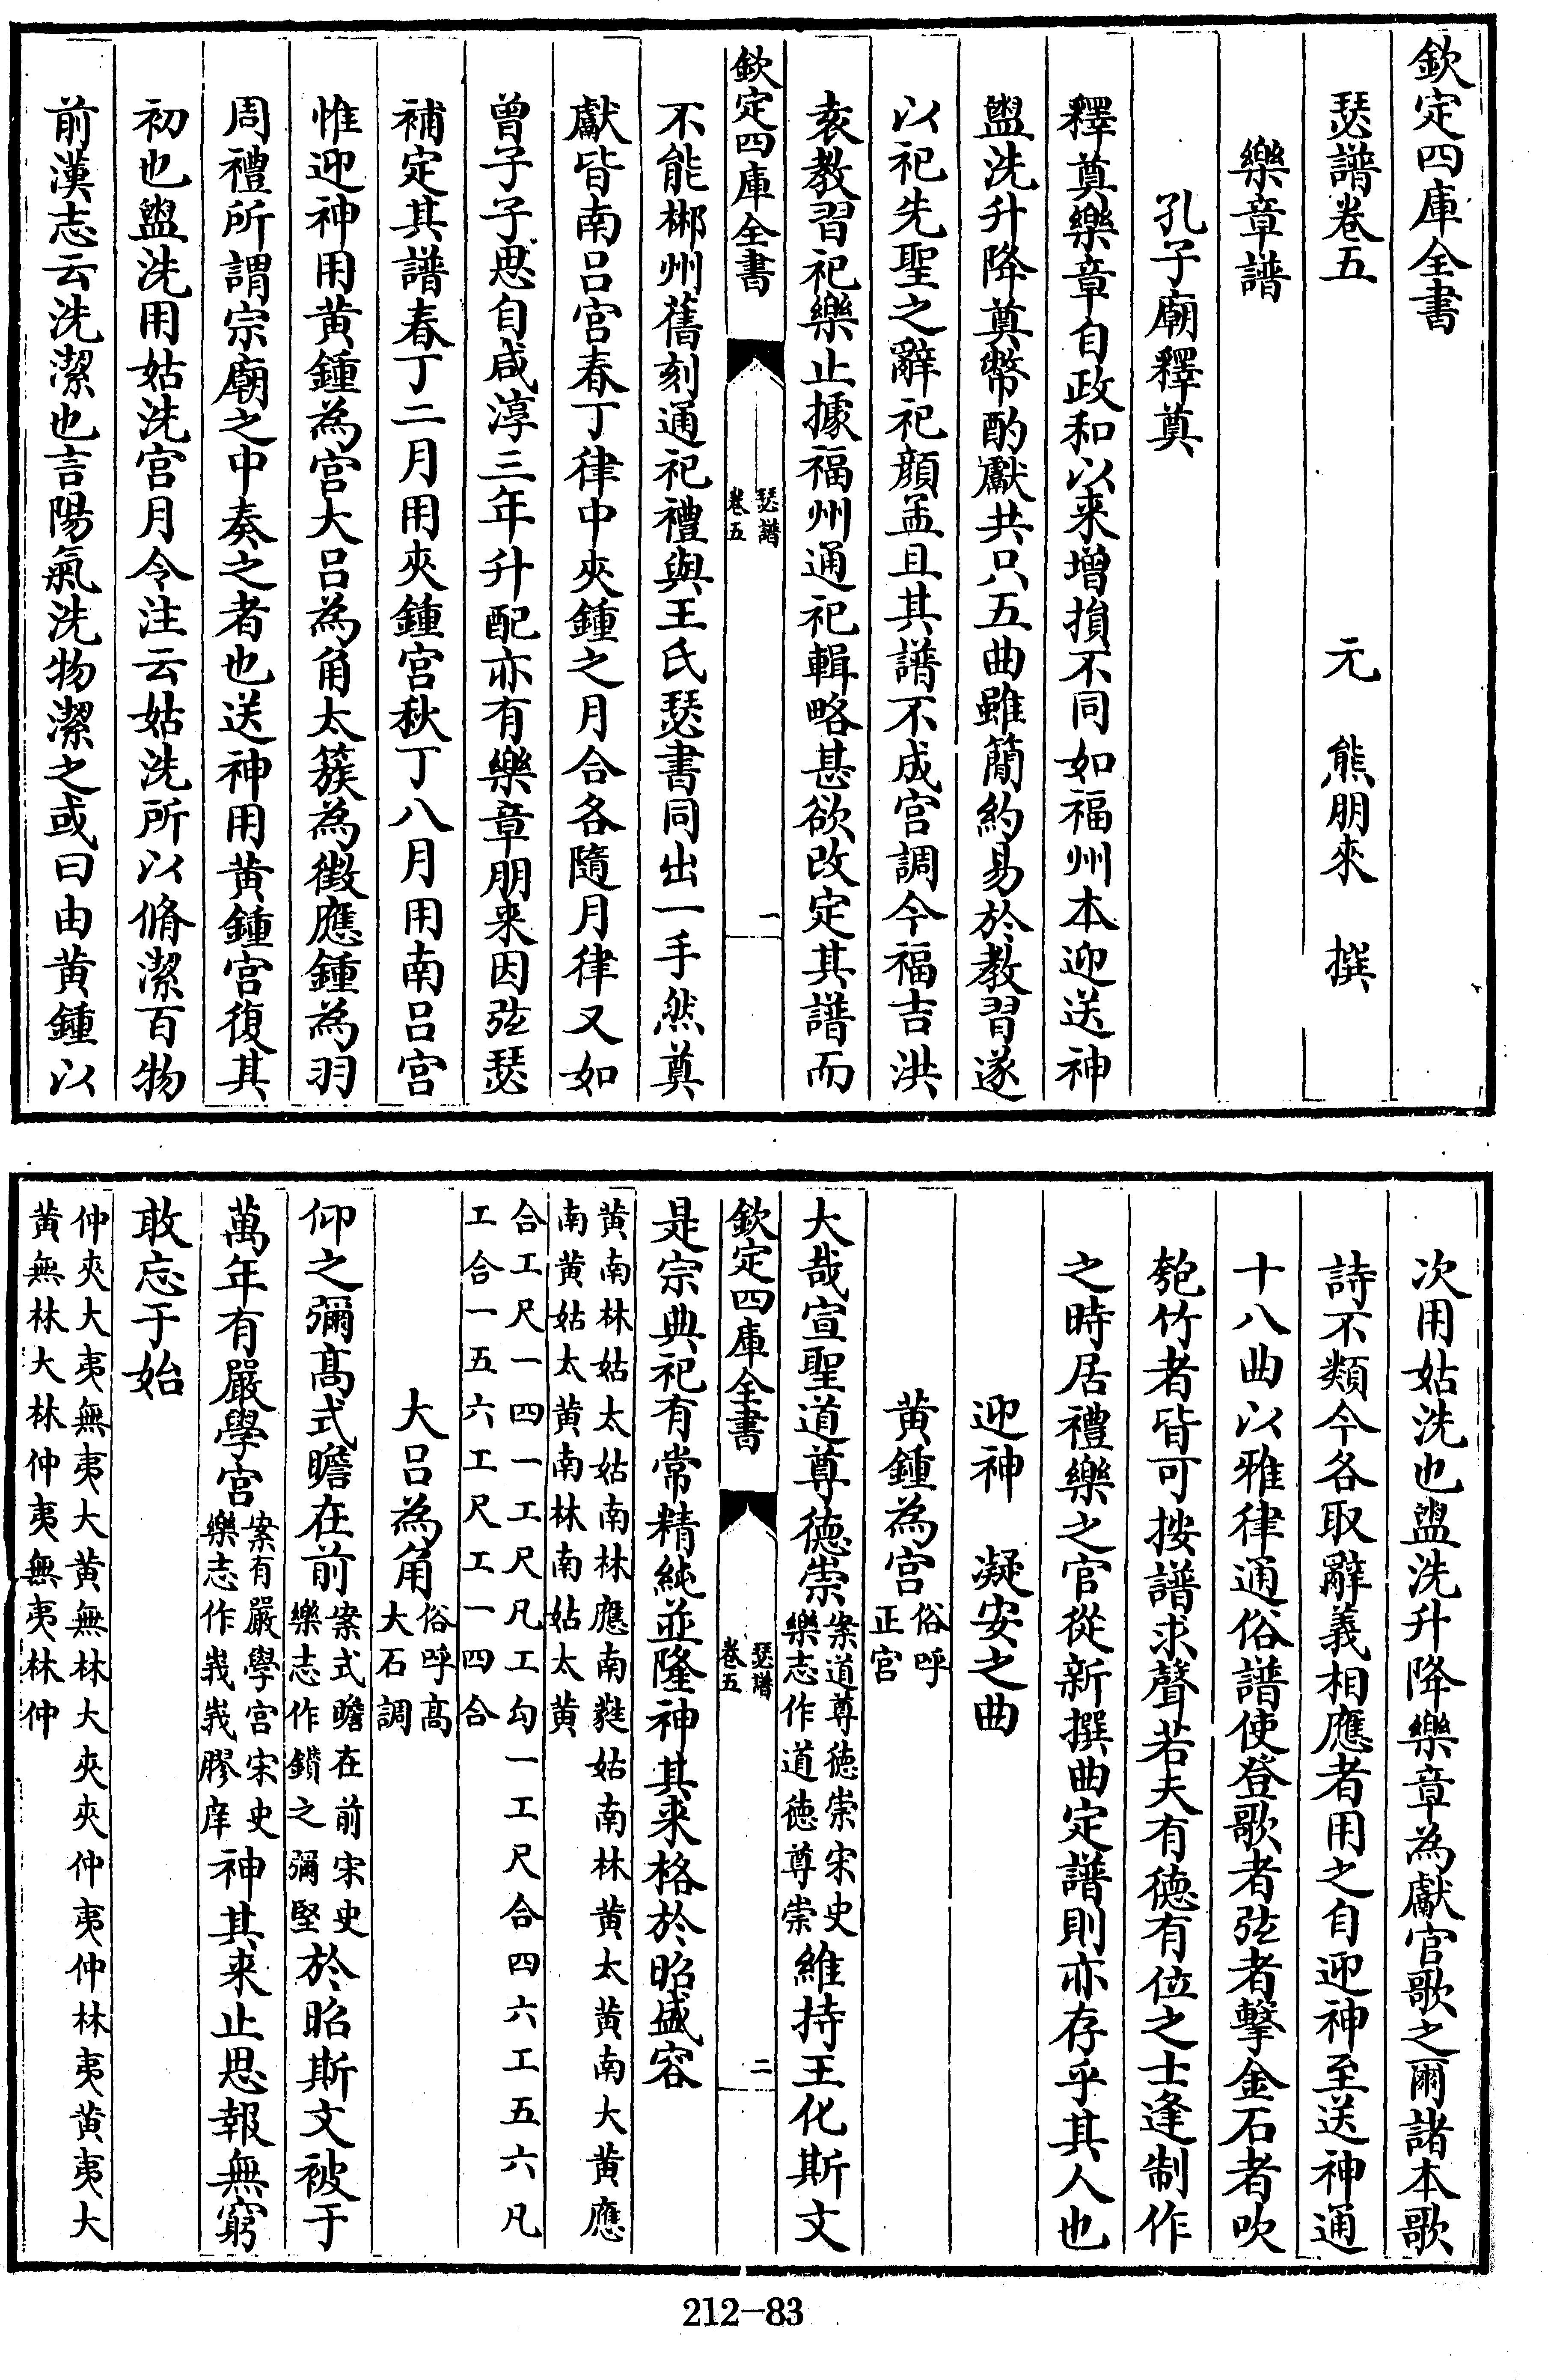 欽定四庫全書
瑟譜卷五
元 熊朋來 撰
樂章譜
孔子廟釋奠
釋奠樂章自政和以來增損不同如福州本迎送神
盥洗升降奠幣酌獻共只五曲雖簡約易於教習遂
以祀先聖之辭祀顔孟且其譜不成宫調今福吉洪
袁教習祀樂止據福州通祀輯略甚欲改定其譜而
欽定四庫全書
瑟譜
卷五
一
不能郴州舊刻通祀禮與王氏瑟書同出一手然奠
獻皆南呂宫春丁律中夾鍾之月合各隨月律又如
曾子子思自咸淳三年升配亦有樂章朋来因弦瑟
補定其譜春丁二月用夾鍾宫秋丁八月用南呂宫
惟迎神用黄鍾為宫大呂為角太簇為徵應鍾為羽
周禮所謂宗廟之中奏之者也送神用黄鍾宫復其
初也盥洗用姑洗宫月令注云姑洗所以脩潔百物
前漢志云洗潔也言陽氣洗物潔之或曰由黄鍾以
次用姑洗也盥洗升降樂章為獻官歌之爾諸本歌
詩不類今各取辭義相應者用之自迎神至送神通
十八曲以雅律通俗譜使登歌者弦者擊金石者吹
匏竹者皆可按譜求聲若夫有德有位之士逢制作
之時居禮樂之官從新撰曲定譜則亦存乎其人也
迎神 凝安之曲
黄鍾為宫俗呼正宫
大哉宣聖道尊德崇案道尊德崇宋史樂志作道德尊崇維持王化斯文
欽定四庫全書
瑟譜
卷五
二
是宗典祀有常精純並隆神其来格於昭盛容
黄南林姑太姑南林應南蕤姑南林黄太黄南大黄應
南黄姑太黄南林南姑太黄
合工尺一四一工尺凡工勾一工尺合四六工五六凡
工合一五六工尺工一四合
大呂為角俗呼高大石調
仰之彌髙式瞻在前案式瞻在前宋史樂志作鑚之彌堅於昭斯文被于
萬年有嚴學宫案有嚴學宫宋史樂志作峩峩膠庠神其来止思報無窮
敢忘于始
仲夾大夷無夷大黄無林大夾夾仲夷仲林夷黄夷大
黄無林大林仲夷無夷林仲
212-83